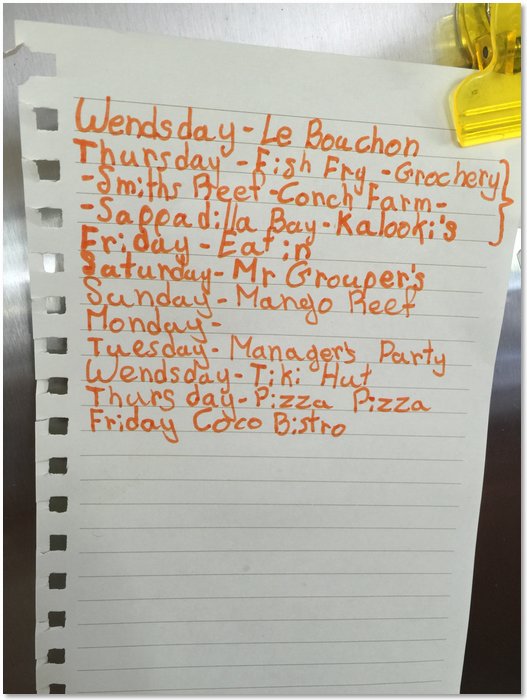 Wendsday - Le Bouchon
Thursday - Fish Fry - Grochery
- Smiths Reef - Conch Farm -
- Sappadilla Bay - Kalooki's
Friday - Eat in
Saturday - Mr Grouper's
Sunday - Mango Reef
Monday -
Tuesday - Manager's Party
Wendsday - Tiki Hut
Thursday - Pizza Pizza
Friday Coco Bistro